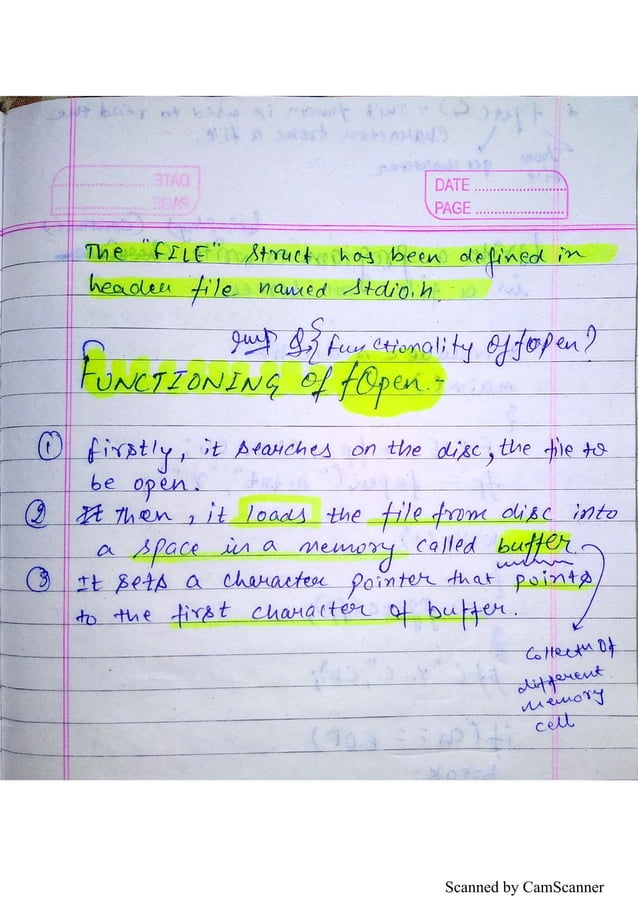 DATE
PAGE
The "FILE" struct has been defined in
header file named stdio.h.
Imp Q{ functionality of fopen?
FUNCTIONING Of fOpen:-
① firstly, it searches on the disc, the file to
be open.
② Then, it loads the file from disc into
a space in a memory called buffer
③ It sets a character pointer that points
to the first character of buffer.
Collectn Of
different
memory
cell
Scanned by CamScanner